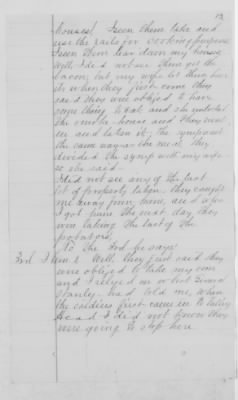 12
houses. I seen them take and
use the rails for cooking purposes
I seen them tear down my house
Well, I did not see them get the
bacon; but my wife let them have
it when they just come they
said they were obliged to have
some thing to eat and she unlocked
the smoke house and they went
in and taken it; the syrup went
the same way as the meal they
divided the syrup with my wife
so she said.
I did not see any of the last
lot of property taken, they caught
me away from here, and when
I got here the next day, they
was taking the last of the
potatoes,
To the 3rd he says
3rd Item. Well, they just said they
were obliged to take my corn
and I relied on what General
Stanley had told me, when
the soldiers first came in to
I did not know they
were going to stop here